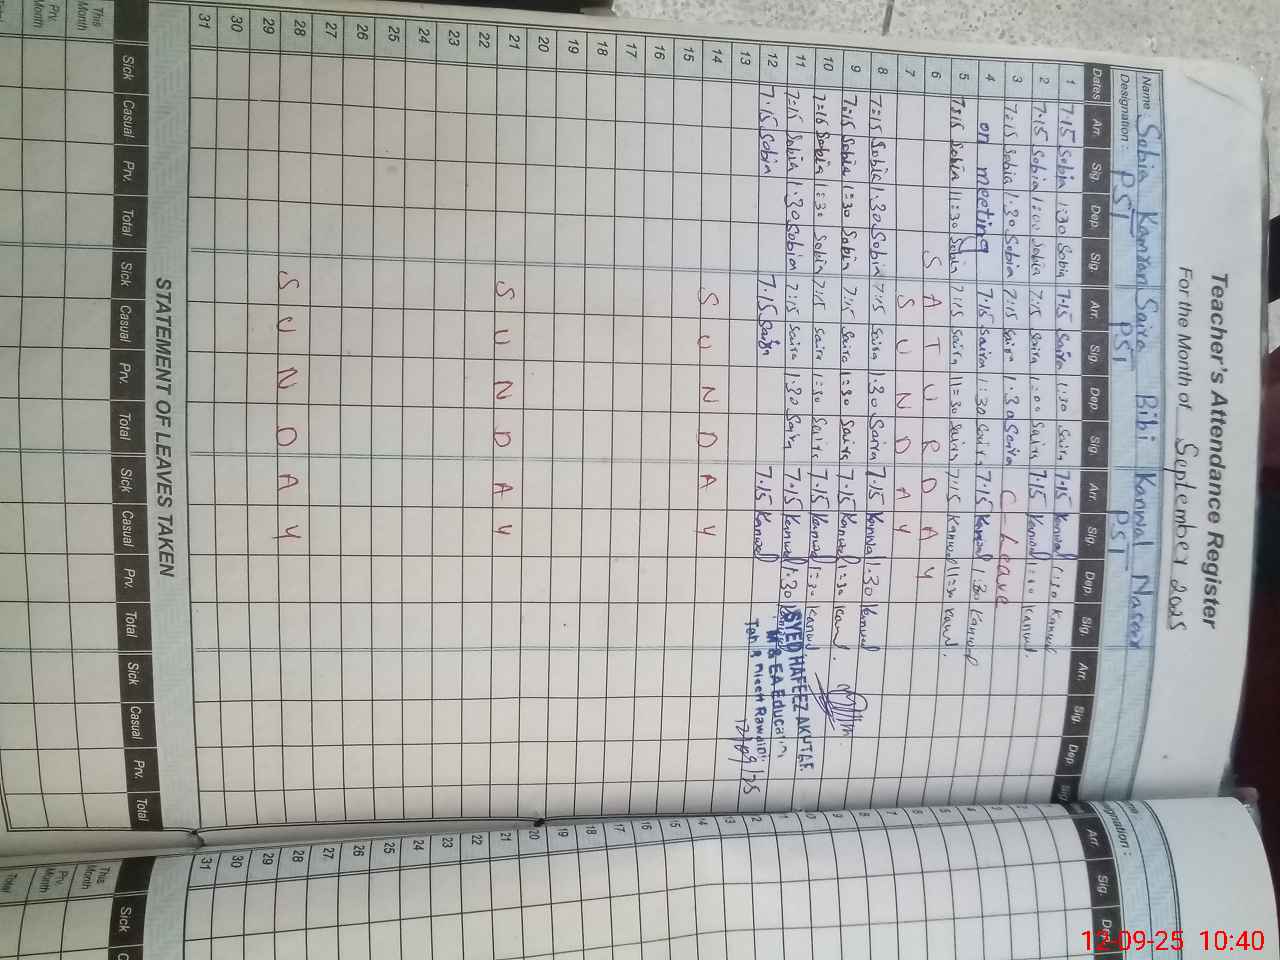 Teacher's Attendance Register
For the Month of September 2025
Name: Sobia Kamran Saira Bibi Kanwal Naseer
Designation: PST PST PST
Dates Arr. Sig. Dep. Sig. Arr. Sig. Dep. Sig. Arr. Sig. Dep. Sig. Arr. Sig. Dep. Sig.
1 7.15 Sobia 1:30 Sobia 7.15 Saira 1:30 Saira 7.15 Kanwal 1:30 Kanwal
2 7.15 Sobia 1:00 Sobia 7:15 Saira 1:00 Saira 7.15 Kanwal 1:00 Kanwal.
3 7:15 Sobia 1:30 Sobia 7:15 Saira 1:30 Saira C-Leave
4 on meeting 7.15 Saira 1:30 Saira 7.15 Kanwal 1:30 Kanwal
5 7:15 Sobia 11:30 Sobia 7:15 Saira 11:30 Saira 7:15 Kanwal 11:30 Kanwal.
6 SATURDAY
7 SUNDAY
8 7:15 Sobia 1.30 Sobia 7:15 Saira 1.30 Saira 7.15 Kanwal 1.30 Kanwal
9 7:15 Sobia 1:30 Sobia 7:15 Saira 1:30 Saira 7.15 Kanwal 1:30 Kanwal.
10 7:16 Sobia 1:30 Sobia 7:15 Saira 1:30 Saira 7.15 Kanwal 1:30 Kanwal
11 7:15 Sobia 1:30 Sobia 7:15 Saira 1:30 Saira 7.15 Kanwal 1:30 Kanwal
12 7.15 Sobia 7.15 Saira 7.15 Kanwal
SYED HAFEEZ AKHTAR
M & EA Education
12/09/25
13
14 SUNDAY
15
16
17
18
19
20
21 SUNDAY
22
23
24
25
26
27
28 SUNDAY
29
30
31
STATEMENT OF LEAVES TAKEN
Sick Casual Prv. Total Sick Casual Prv. Total Sick Casual Prv. Total Sick Casual Prv. Total
This Month
Prv. Month
Total
Arr. Sig. Dep.
13
14
15
16
17
18
19
20
21
22
23
24
25
26
27
28
29
30
31
Sick
This Month
Prv. Month
Total
12-09-25 10:40